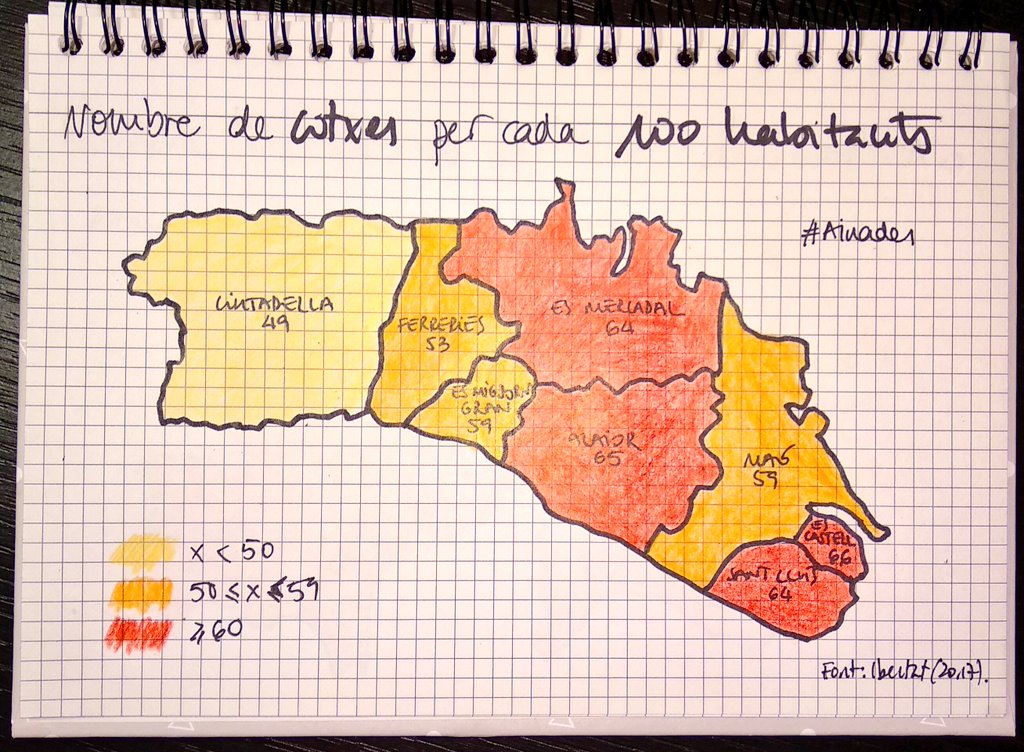 Nombre de cotxes per cada 100 habitants
#Ainades
CIUTADELLA
49
FERRERIES
53
ES MERCADAL
64
ES MIGJORN
GRAN
59
ALAIOR
65
MAÓ
59
ES
CASTELL
66
SANT LLUÍS
64
x < 50
50 ≤ x ≤ 59
≥60
Font: Ibestat (2017).